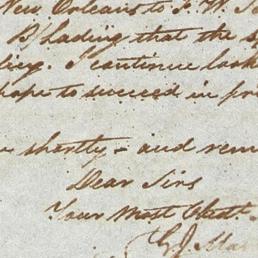 New Orleans to J. W.
B Lading that the
I continue look
hope to succeed in
shortly - and rem
Dear Sirs
Your most Obdt.